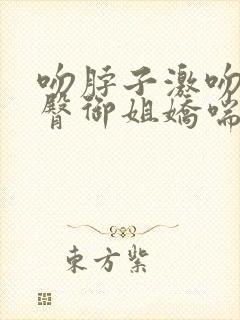 吻脖子激吻
臀御姐娇喘
东方紫